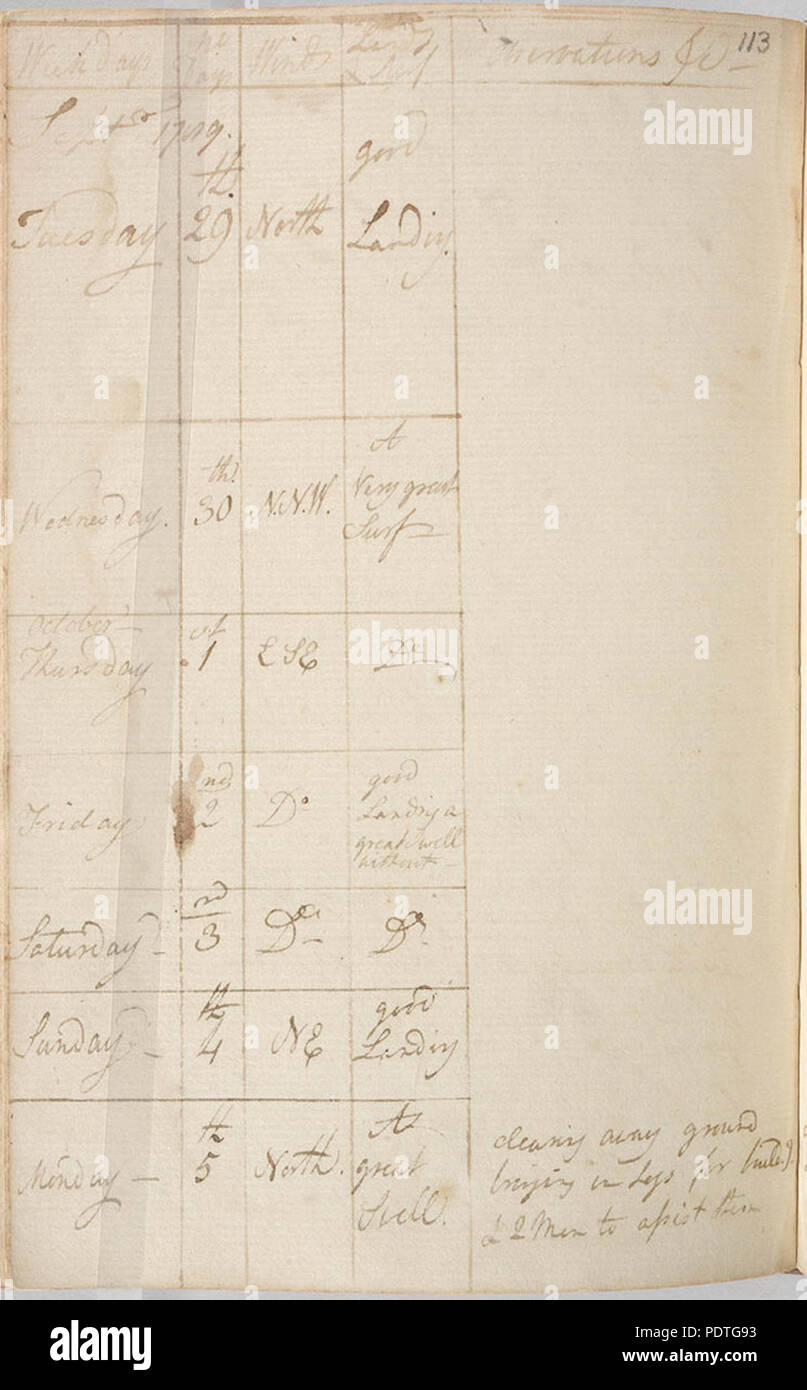 113
Week days the Days Winds Landg & Surf Observations &c
Septr 1789.
Tuesday 29th. North good Landing.
Wednesday. 30th. N.N.W. A Very great Surf
October
Thursday 1st ESE Do
Friday 2nd Do good Landing a great Swell without
Saturday 3rd Do Do
Sunday 4th NE good Landing
Monday 5th North. A great Swell.
clearing away ground
bringing in Logs for build.g.
& 2 Men to assist them
alamy
a
alamy
Image ID: PDTG93
www.alamy.com